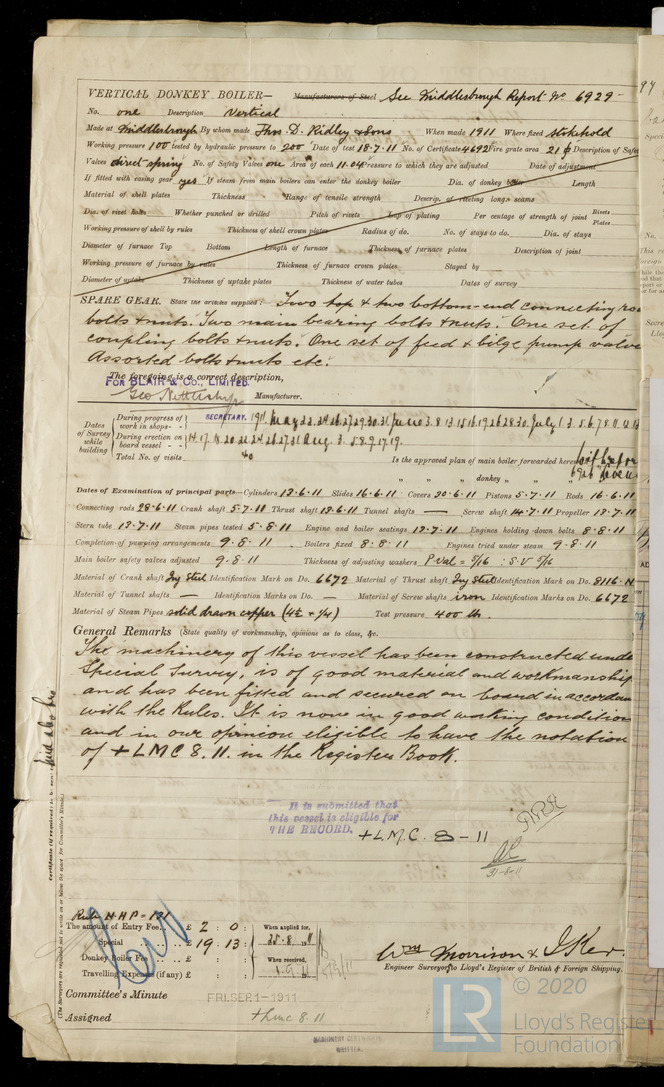 VERTICAL DONKEY BOILER— Manufacturers of Steel See Middlesbrough Report No 6929
No. one Description Vertical
Made at Middlesbrough By whom made Thos. D. Ridley & Sons When made 1911 Where fixed stokehold
Working pressure 100 tested by hydraulic pressure to 200 Date of test 18.7.11 No. of Certificate 4692 Fire grate area 21 Description of Safety
Valves direct spring No. of Safety Valves one Area of each 11.04 Pressure to which they are adjusted Date of adjustment
If fitted with easing gear yes If steam from main boilers can enter the donkey boiler Dia. of donkey boiler Length
Material of shell plates Thickness Range of tensile strength Descrip. of riveting long. seams
Dia. of rivet holes Whether punched or drilled Pitch of rivets Lap of plating Per centage of strength of joint Rivets Plates
Working pressure of shell by rules Thickness of shell crown plates Radius of do. No. of stays to do. Dia. of stays
Diameter of furnace Top Bottom Length of furnace Thickness of furnace plates Description of joint
Working pressure of furnace by rules Thickness of furnace crown plates Stayed by
Diameter of uptake Thickness of uptake plates Thickness of water tubes Dates of survey
SPARE GEAR. State the articles supplied:— Two top & two bottom-end connecting rod
bolts & nuts. Two main bearing bolts & nuts. One set of
coupling bolts & nuts. One set of feed & bilge pump valves
Assorted bolts & nuts etc.
The foregoing is a correct description,
FOR BLAIR & Co., LIMITED.
Manufacturer.
SECRETARY.
Dates of Survey while building
During progress of work in shops - - 1911 May 22.24.26.27.29.30.31 June 3.8.13.15.16.19.26.28.30. July 1.3.5.6.7.8.11.12.13
During erection on board vessel - - 14.17.18.20.21.24.26.27.31 Aug. 3.5.8.9.17.19.
Total No. of visits 40 Is the approved plan of main boiler forwarded herewith
" " " donkey " " "
Dates of Examination of principal parts—Cylinders 12.6.11 Slides 16.6.11 Covers 30.6.11 Pistons 5.7.11 Rods 16.6.11
Connecting rods 28.6.11 Crank shaft 5.7.11 Thrust shaft 12.6.11 Tunnel shafts — Screw shaft 14.7.11 Propeller 13.7.11
Stern tube 13.7.11 Steam pipes tested 5.8.11 Engine and boiler seatings 12.7.11 Engines holding down bolts 8.8.11
Completion of pumping arrangements 9.8.11 Boilers fixed 8.8.11 Engines tried under steam 9.8.11
Main boiler safety valves adjusted 9.8.11 Thickness of adjusting washers P val = 5/16 : S.V 5/16
Material of Crank shaft Ing Steel Identification Mark on Do. 6672 Material of Thrust shaft Ing Steel Identification Mark on Do. 8116.N
Material of Tunnel shafts — Identification Marks on Do. — Material of Screw shafts iron Identification Marks on Do. 6672
Material of Steam Pipes solid drawn copper Test pressure 400 lbs.
General Remarks (State quality of workmanship, opinions as to class, &c.
The machinery of this vessel has been constructed under
Special Survey, is of good material and workmanship
and has been fitted and secured on board in accordance
with the Rules. It is now in good working condition
and in our opinion eligible to have the notation
of + LMC 8.11. in the Register Book.
It is submitted that
this vessel is eligible for
THE RECORD. + L.M.C. 8-11
31-8-11
The amount of Entry Fee.. £ 2 : 0 : When applied for,
Special £ 19 : 13 : 25.8.1911
Donkey Boiler Fee £ : : When received,
Travelling Expenses (if any) £ : :
Wm Morrison & J. Ker.
Engineer Surveyors to Lloyd's Register of British & Foreign Shipping.
Committee's Minute FRI.SEP.1-1911
Assigned + LMC 8.11
MACHINERY CERTIFICATE
WRITTEN.
LR © 2020
Lloyd's Register
Foundation